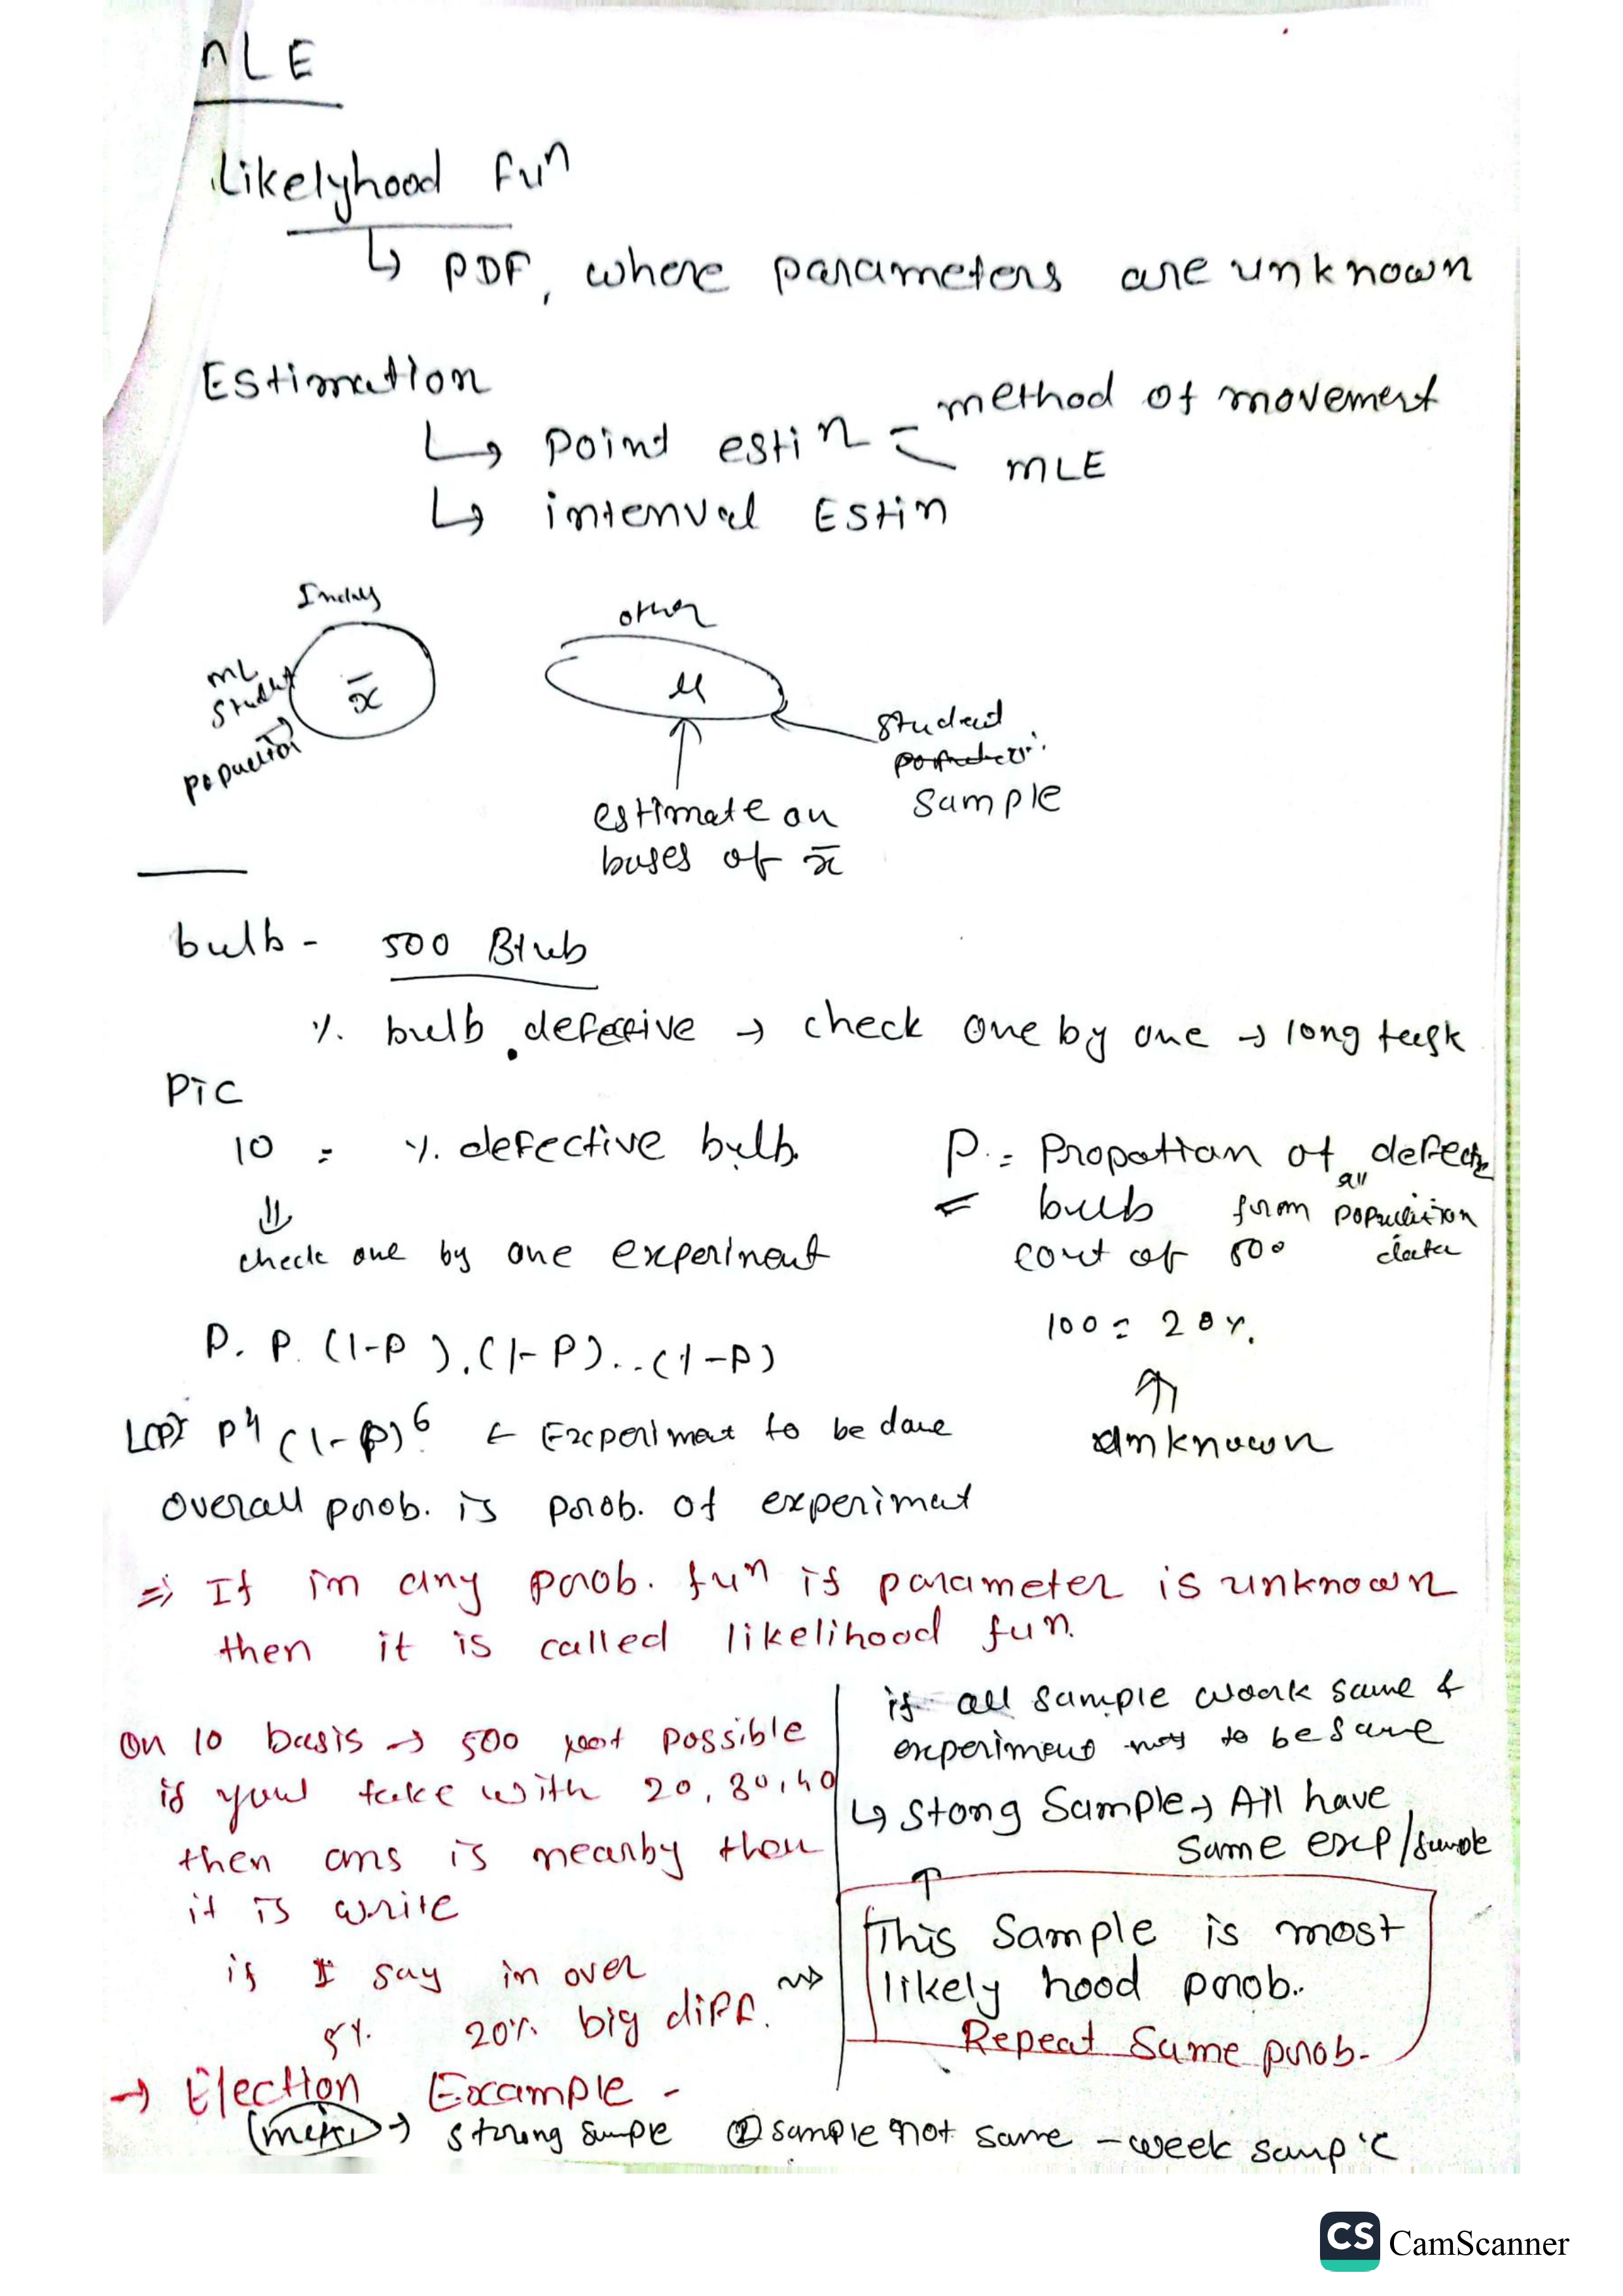 MLE
Likelyhood fun
↳ PDF, where parameters are unknown
Estimation
↳ Point estin = method of movement
MLE
↳ interval Estin
other
ML
Student
x̄
μ
Population
Student
Sample
estimate on
bases of x̄
bulb - 500 Blub
% bulb defective → check one by one → long task
Pic
10 = % defective bulb
check one by one experiment
P = Propottion of all defecte
bulb from population
out of 500 data
100 = 20%
unknown
P. P. (1-P).(1-P)...(1-P)
L(P) P⁴ (1-P)⁶ ← Experiment to be done
overall prob. is prob. of experimet
⇒ If in any prob. fun if parameter is unknown
then it is called likelihood fun.
On 10 basis → 500 not possible
if you take with 20, 30, 40
then ans is nearby then
it is write
if I say in over
5% 20% big diff.
if all sample work same &
experiment to be same
↳ Stong Sample → All have
Same exp/sample
This Sample is most
likely hood prob.
Repeat Same prob.
→ Election Example -
→ strong sample ② sample not same - week sample
CS CamScanner